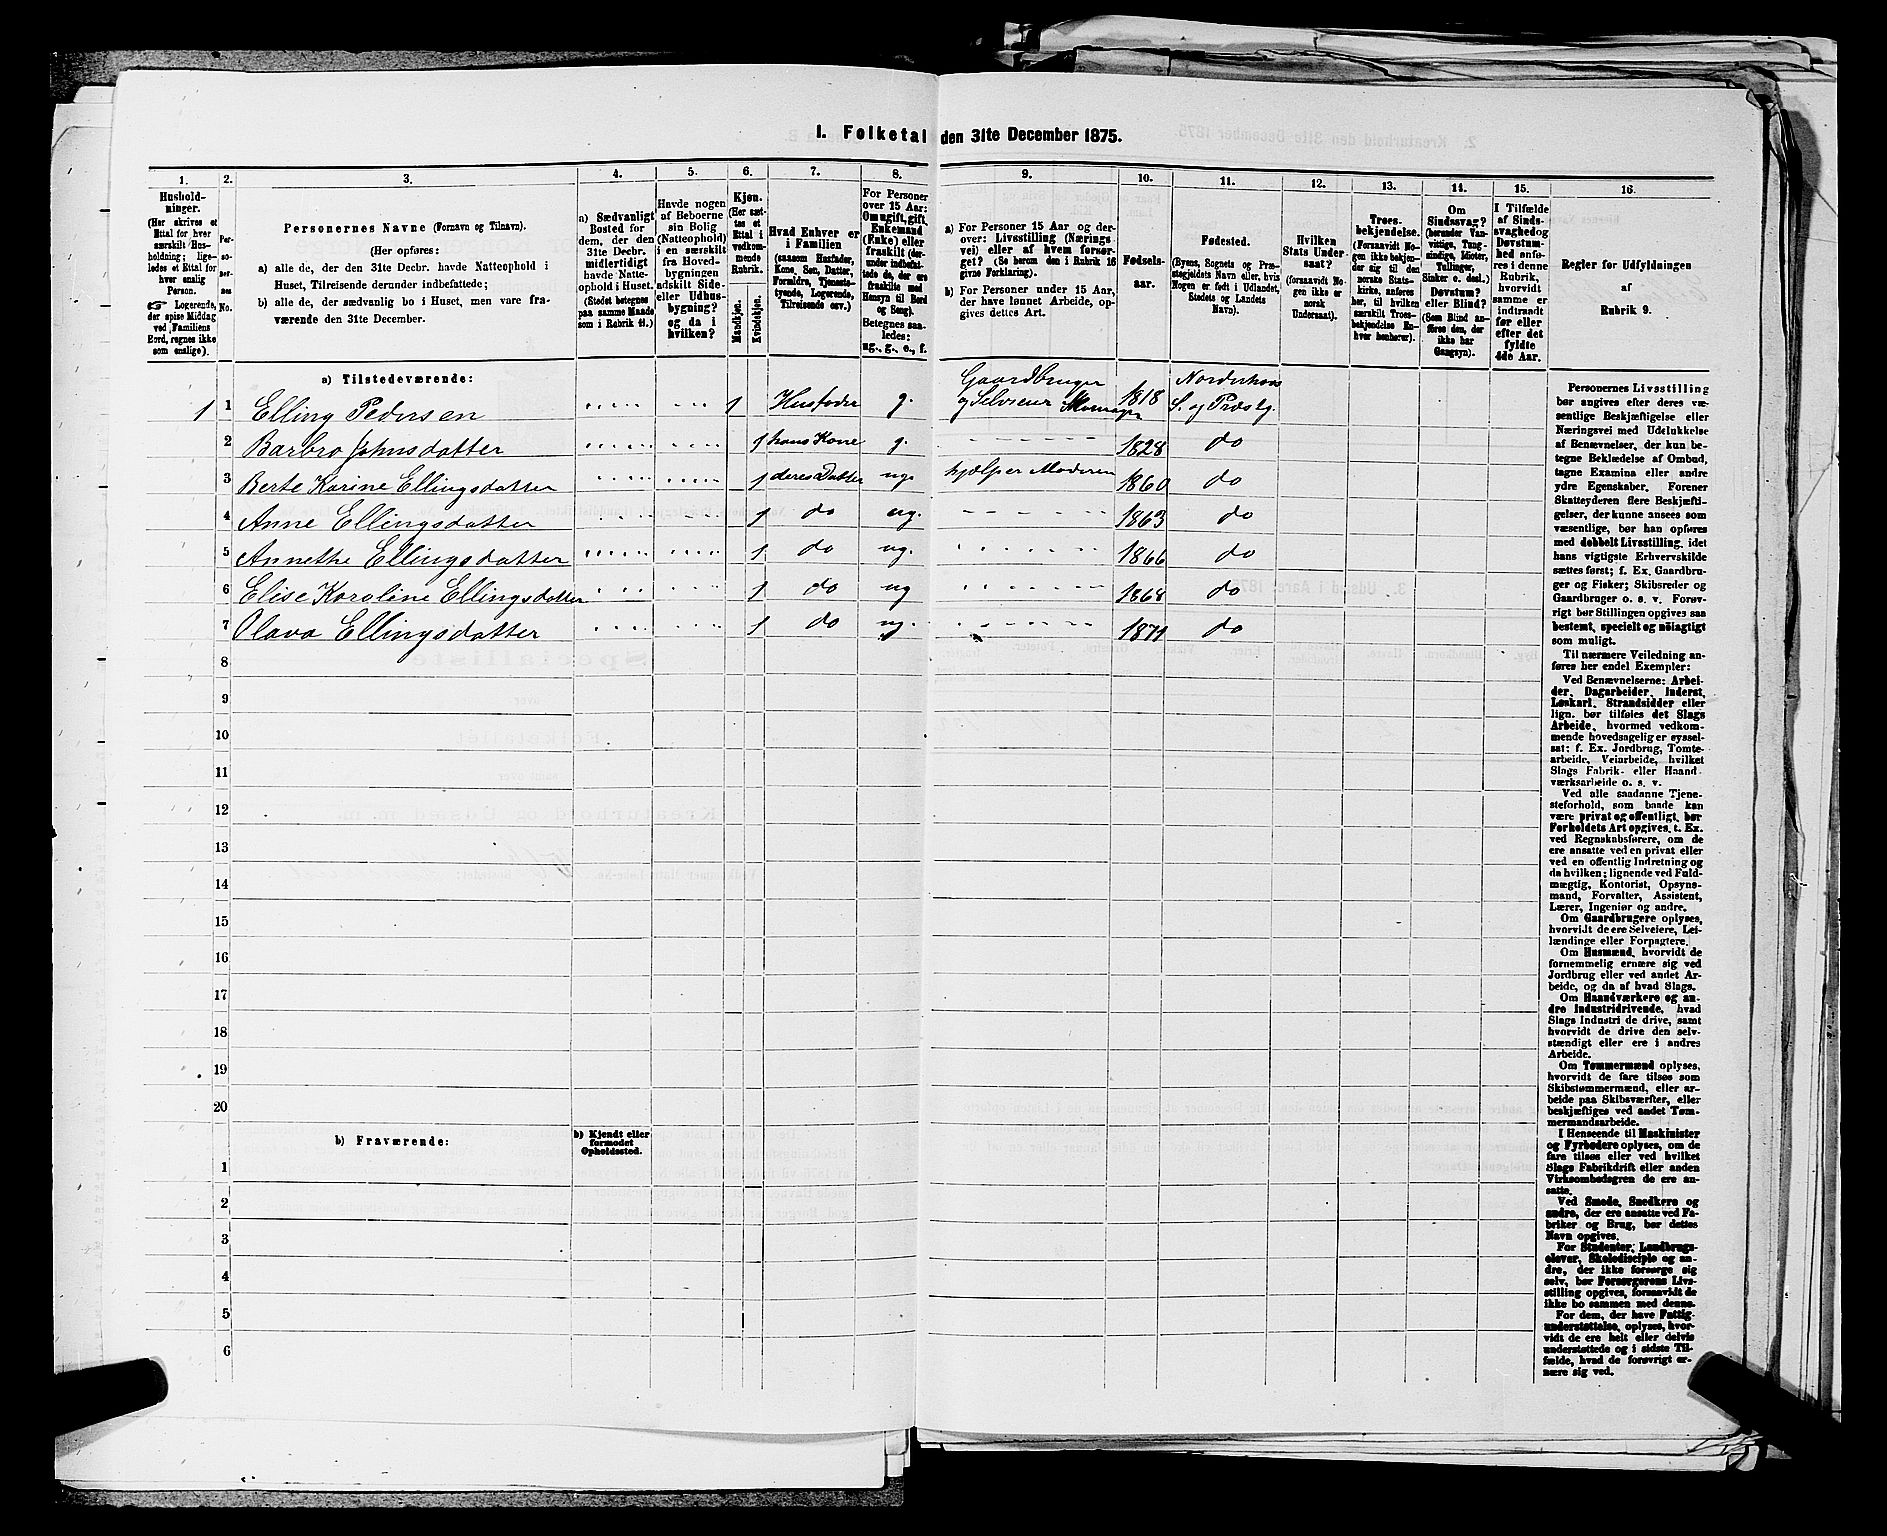 I. Folketal den 31te December 1875.
1.
Hushold-
ninger.
(Her skrives et
Ettal for hver
særskilt Hus-
holdning; lige-
ledes et Ettal for
hver enslig
Person.
☞ Logerende,
der spise Middag
ved Familiens
Bord, regnes ikke
som enslige).
2.
Per-
so-
ner-
nes
No.
3.
Personernes Navne (Fornavn og Tilnavn).
(Her opføres:
a) alle de, der den 31te Decbr. havde Natteophold i
Huset, Tilreisende derunder indbefattede;
b) alle de, der sædvanlig bo i Huset, men vare fra-
værende den 31te December.
4.
a) Sædvanligt
Bosted for
dem, der den
31te Decbr.
midlertidigt
havde Natte-
ophold i Huset.
(Stedet betegnes
paa samme Maade
som i Rubrik 11.)
5.
Havde nogen
af Beboerne
sin Bolig
(Natteophold)
i en særskilt
fra Hoved-
bygningen
adskilt Side-
eller Udhus-
bygning?
og da i
hvilken?
6.
Kjøn.
(Her sæt-
tes et
Ettal i
vedkom-
mende
Rubrik.
Mandkjøn.
Kvindekjøn.
7.
Hvad Enhver er
i Familien
(saasom Husfader,
Kone, Søn, Datter,
Forældre, Tjeneste-
tyende, Logerende,
Tilreisende osv.)
8.
For Personer
over 15 Aar:
Om ugift, gift,
Enkemand
(Enke) eller
fraskilt (der-
under indbefat-
tede de, der ere
fraskilte med
Hensyn til Bord
og Seng).
Betegnes saa-
ledes:
ug., g., e., f.
9.
a) For Personer 15 Aar og der-
over: Livsstilling (Nærings-
vei) eller af hvem forsør-
get? (Se herom den i Rubrik 16
givne Forklaring).
b) For Personer under 15 Aar,
der have lønnet Arbeide, op-
gives dettes Art.
10.
Fødsels-
aar.
11.
Fødested.
(Byens, Sognets og Præ-
stegjeldets Navn eller, hvis
Nogen er født i Udlandet,
Stedets og Landets
Navn).
12.
Hvilken
Stats Under-
saat?
(forsaavidt No-
gen ikke er
norsk
Undersaat).
13.
Troes-
bekjendelse.
(Forsaavidt No-
gen ikke bekjen-
der sig til den
norske Stats-
kirke, anføres
her, til hvilken
særskilt Troes-
bekjendelse En-
hver henhører).
14.
Om
Sindssvag?
(herunder Van-
vittige, Tung-
sindige, Idioter,
Tullinger,
Sinker o. desl.)
Døvstum?
eller Blind?
(Som Blind an-
føres den, der
ikke har
Gangsyn).
15.
I Tilfælde
af Sinds-
svaghed og
Døvstum-
hed anfø-
res i denne
Rubrik,
hvorvidt
samme er
indtraadt
før eller
efter det
fyldte
4de Aar.
16.
Regler for Udfyldningen
af
Rubrik 9.
a) Tilstedeværende:
1 1 Elling Pedersen 1 Husfader g. Gaardbruger og Selveier 1818 Norderhovs S. og Præstg.
2 Barbro Johnsdatter 1 hans Kone g. 1828 do
3 Berte Karine Ellingsdatter 1 deres Datter ug. hjælper Moderen 1860 do
4 Anne Ellingsdatter 1 do ug. 1863 do
5 Annethe Ellingsdatter 1 do ug. 1866 do
6 Elise Karoline Ellingsdatter 1 do ug 1868 do
7 Olava Ellingsdatter 1 do ug. 1871 do
8
9
10
11
12
13
14
15
16
17
18
19
20
b) Fraværende:
b) Kjendt eller
formodet
Opholdssted.
1
2
3
4
5
6
Personernes Livsstilling
bør angives efter deres væ-
sentlige Beskjæftigelse eller
Næringsvei med Udelukkelse
af Benævnelser, der kun be-
tegne Beklædelse af Ombud,
tagne Examina eller andre
ydre Egenskaber. Forener
Skatteyderen flere Beskjæfti-
gelser, der kunne ansees som
væsentlige, bør han opføres
med dobbelt Livsstilling, idet
hans vigtigste Erhvervskilde
sættes først; f. Ex. Gaardbru-
ger og Fisker; Skibsreder og
Gaardbruger o. s. v. Forøv-
rigt bør Stillingen opgives saa
bestemt, specielt og nøiagtigt
som muligt.
Til nærmere Veiledning an-
føres her endel Exempler:
Ved Benævnelserne: Arbei-
der, Dagarbeider, Inderst,
Løskarl, Strandsidder eller
lign. bør tilføies det Slags
Arbeide, hvormed vedkom-
mende hovedsagelig er syssel-
sat; f. Ex. Jordbrug, Tomte-
arbeide, Veiarbeide, hvilket
Slags Fabrik- eller Haand-
værksarbeide o. s. v.
Ved alle saadanne Tjene-
steforhold, som baade kan
være privat og offentligt, bør
Forholdets Art opgives, t. Ex.
ved Regnskabsførere, om de
ere ansatte ved en privat eller
ved en offentlig Indretning og
da hvilken; lignende ved Fuld-
mægtig, Kontorist, Opsyns-
mand, Forvalter, Assistent,
Lærer, Ingeniør og andre.
Om Gaardbrugere oplyses,
hvorvidt de ere Selveiere, Lei-
lændinge eller Forpagtere.
Om Husmænd, hvorvidt de
fornemmelig ernære sig ved
Jordbrug eller ved andet Ar-
beide, og da af hvad Slags.
Om Haandværkere og an-
dre Industridrivende, hvad
Slags Industri de drive, samt
hvorvidt de drive den selv-
stændigt eller ere i andres
Arbeide.
Om Tømmermænd oplyses,
hvorvidt de fare tilsøs som
Skibstømmermænd, eller ar-
beide paa Skibsværfter, eller
beskjæftiges ved andet Tøm-
mermandsarbeide.
I Henseende til Maskinister
og Fyrbødere oplyses, om de
fare tilsøs eller ved hvilket
Slags Fabrikdrift eller anden
Virksomhedsgren de ere an-
satte.
Ved Smede, Snedkere og
andre, der ere ansatte ved Fa-
briker og Brug, bør dettes
Navn opgives.
For Studenter, Landbrugs-
elever, Skoledisciple og an-
dre, der ikke forsørge sig
selv, bør Forsørgerens Livs-
stilling opgives, forsaavidt de
ikke bo sammen med denne.
For dem, der have Fattig-
understøttelse, oplyses, hvor-
vidt de ere helt eller delvis
understøttede og i sidste Til-
fælde, hvad de forøvrigt er-
nære sig ved.